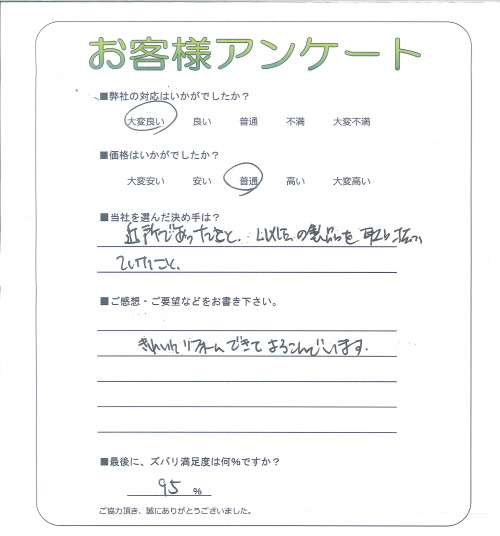 お客様アンケート
■弊社の対応はいかがでしたか？
大変良い 良い 普通 不満 大変不満
■価格はいかがでしたか？
大変安い 安い 普通 高い 大変高い
■当社を選んだ決め手は？
近所であったこと、LIXILの製品を取り扱っ
ていたこと、
■ご感想・ご要望などをお書き下さい。
きれいにリフォームできてよろこんでいます.
■最後に、ズバリ満足度は何%ですか？
95 %
ご協力頂き、誠にありがとうございました。